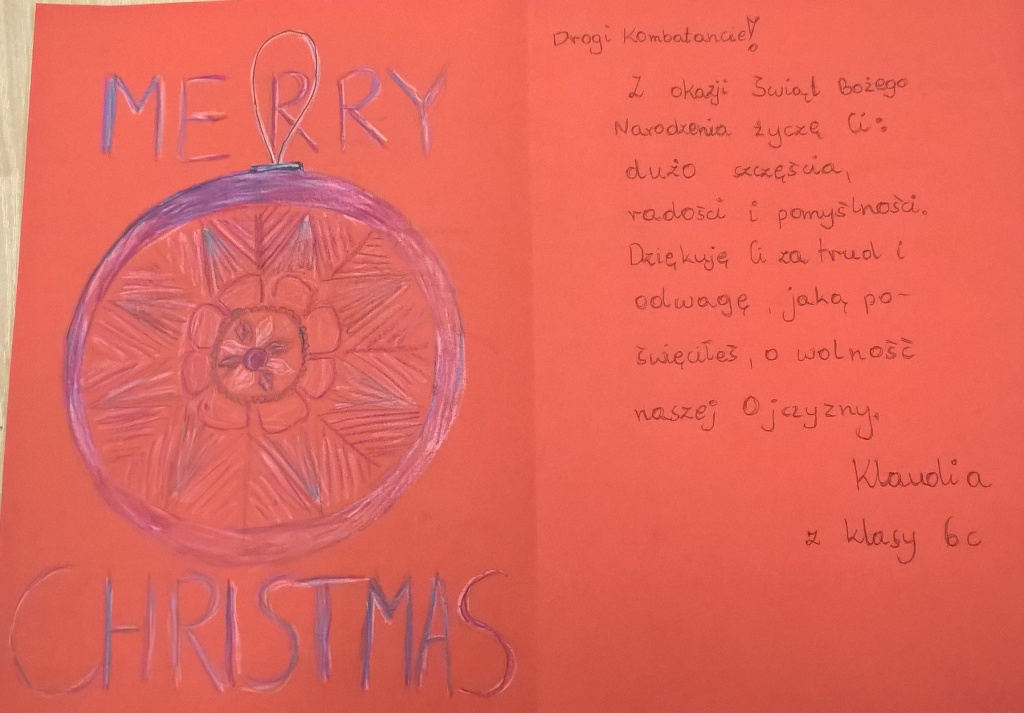 MERRY
CHRISTMAS
Drogi Kombatancie!
Z okazji Świąt Bożego
Narodzenia życzę Ci:
dużo szczęścia,
radości i pomyślności.
Dziękuję Ci za trud i
odwagę, jaką po-
święciłeś, o wolność
naszej Ojczyzny.
Klaudia
z klasy 6c